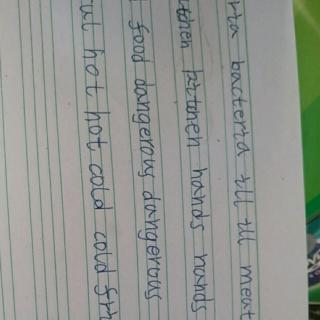 bacteria ill ill meat
kitchen hands hands
food dangerous dangerous
hot hot cold cold